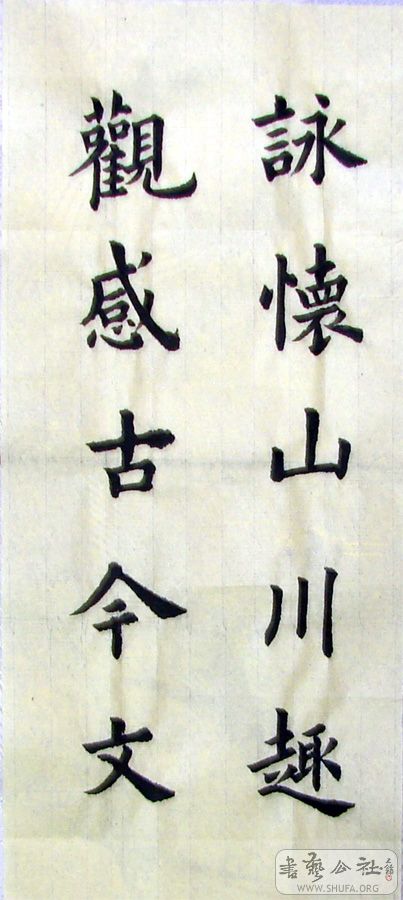 詠懷山川趣
觀感古今文
書藝公社
WWW.SHUFA.ORG